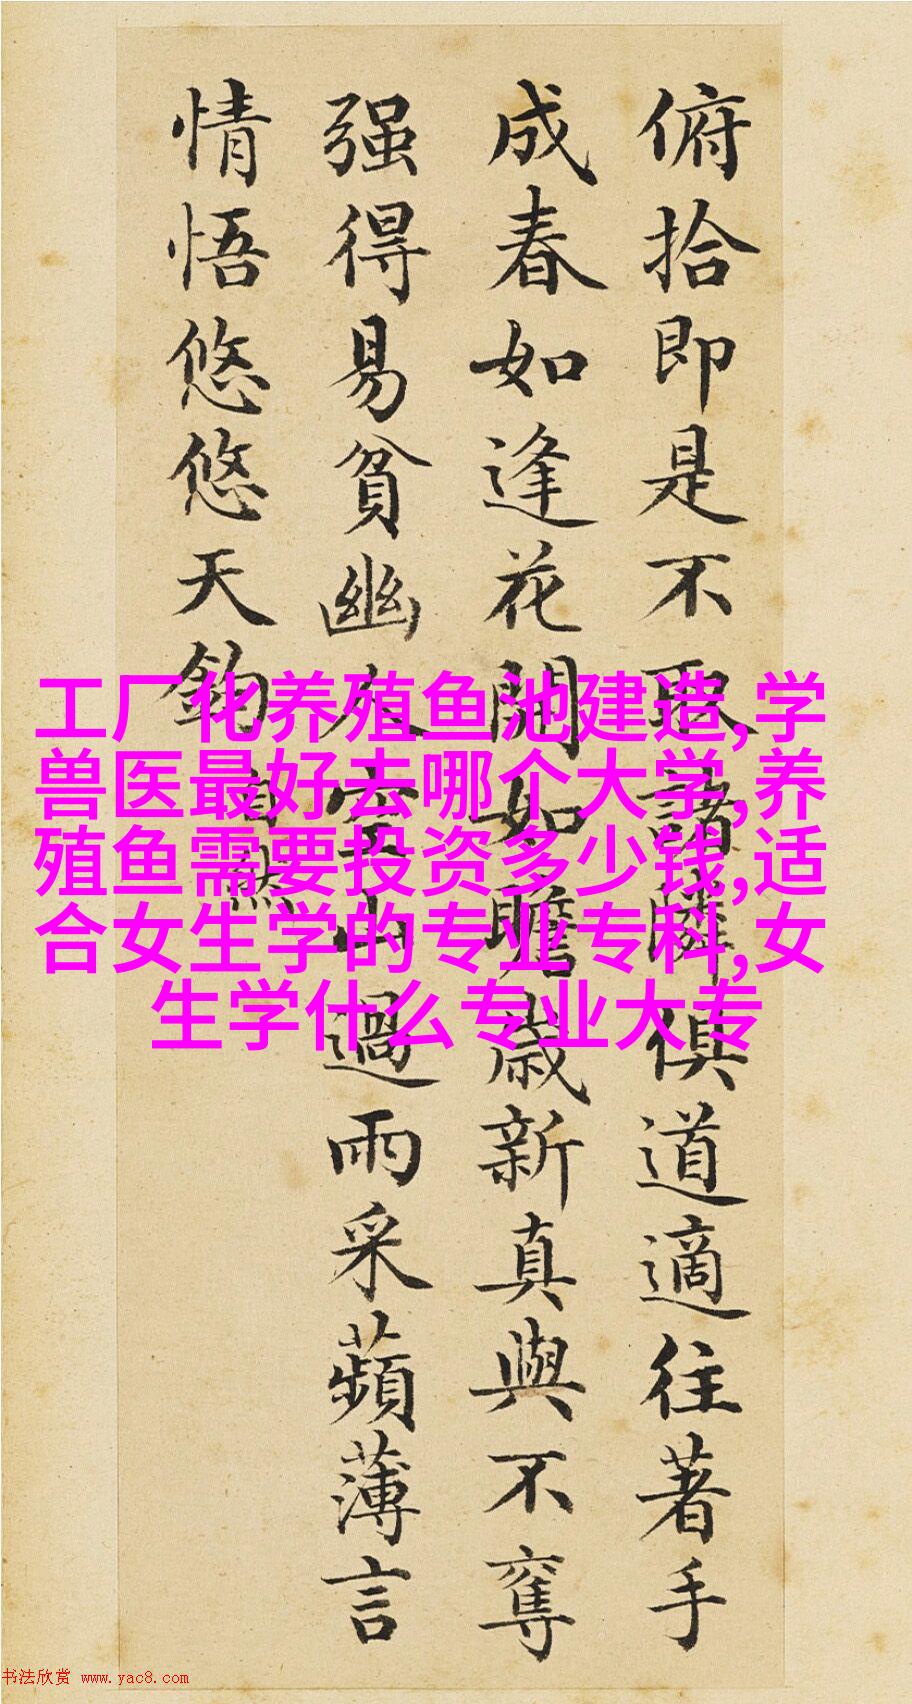 俯拾即是不取諸隣俱道適往著手
成春如逢花開如瞻歲新真與不奪
强得易貧幽人空山過雨采蘋薄言
情悟悠悠天鈞
自然
工厂化养殖鱼池建造,学
兽医最好去哪个大学,养
殖鱼需要投资多少钱,适
合女生学的专业专科,女
生学什么专业大专
书法欣赏 www.yac8.com